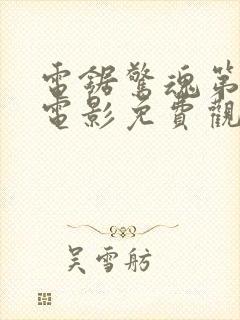 電鋸驚魂第
電影免費觀
吳雪舫